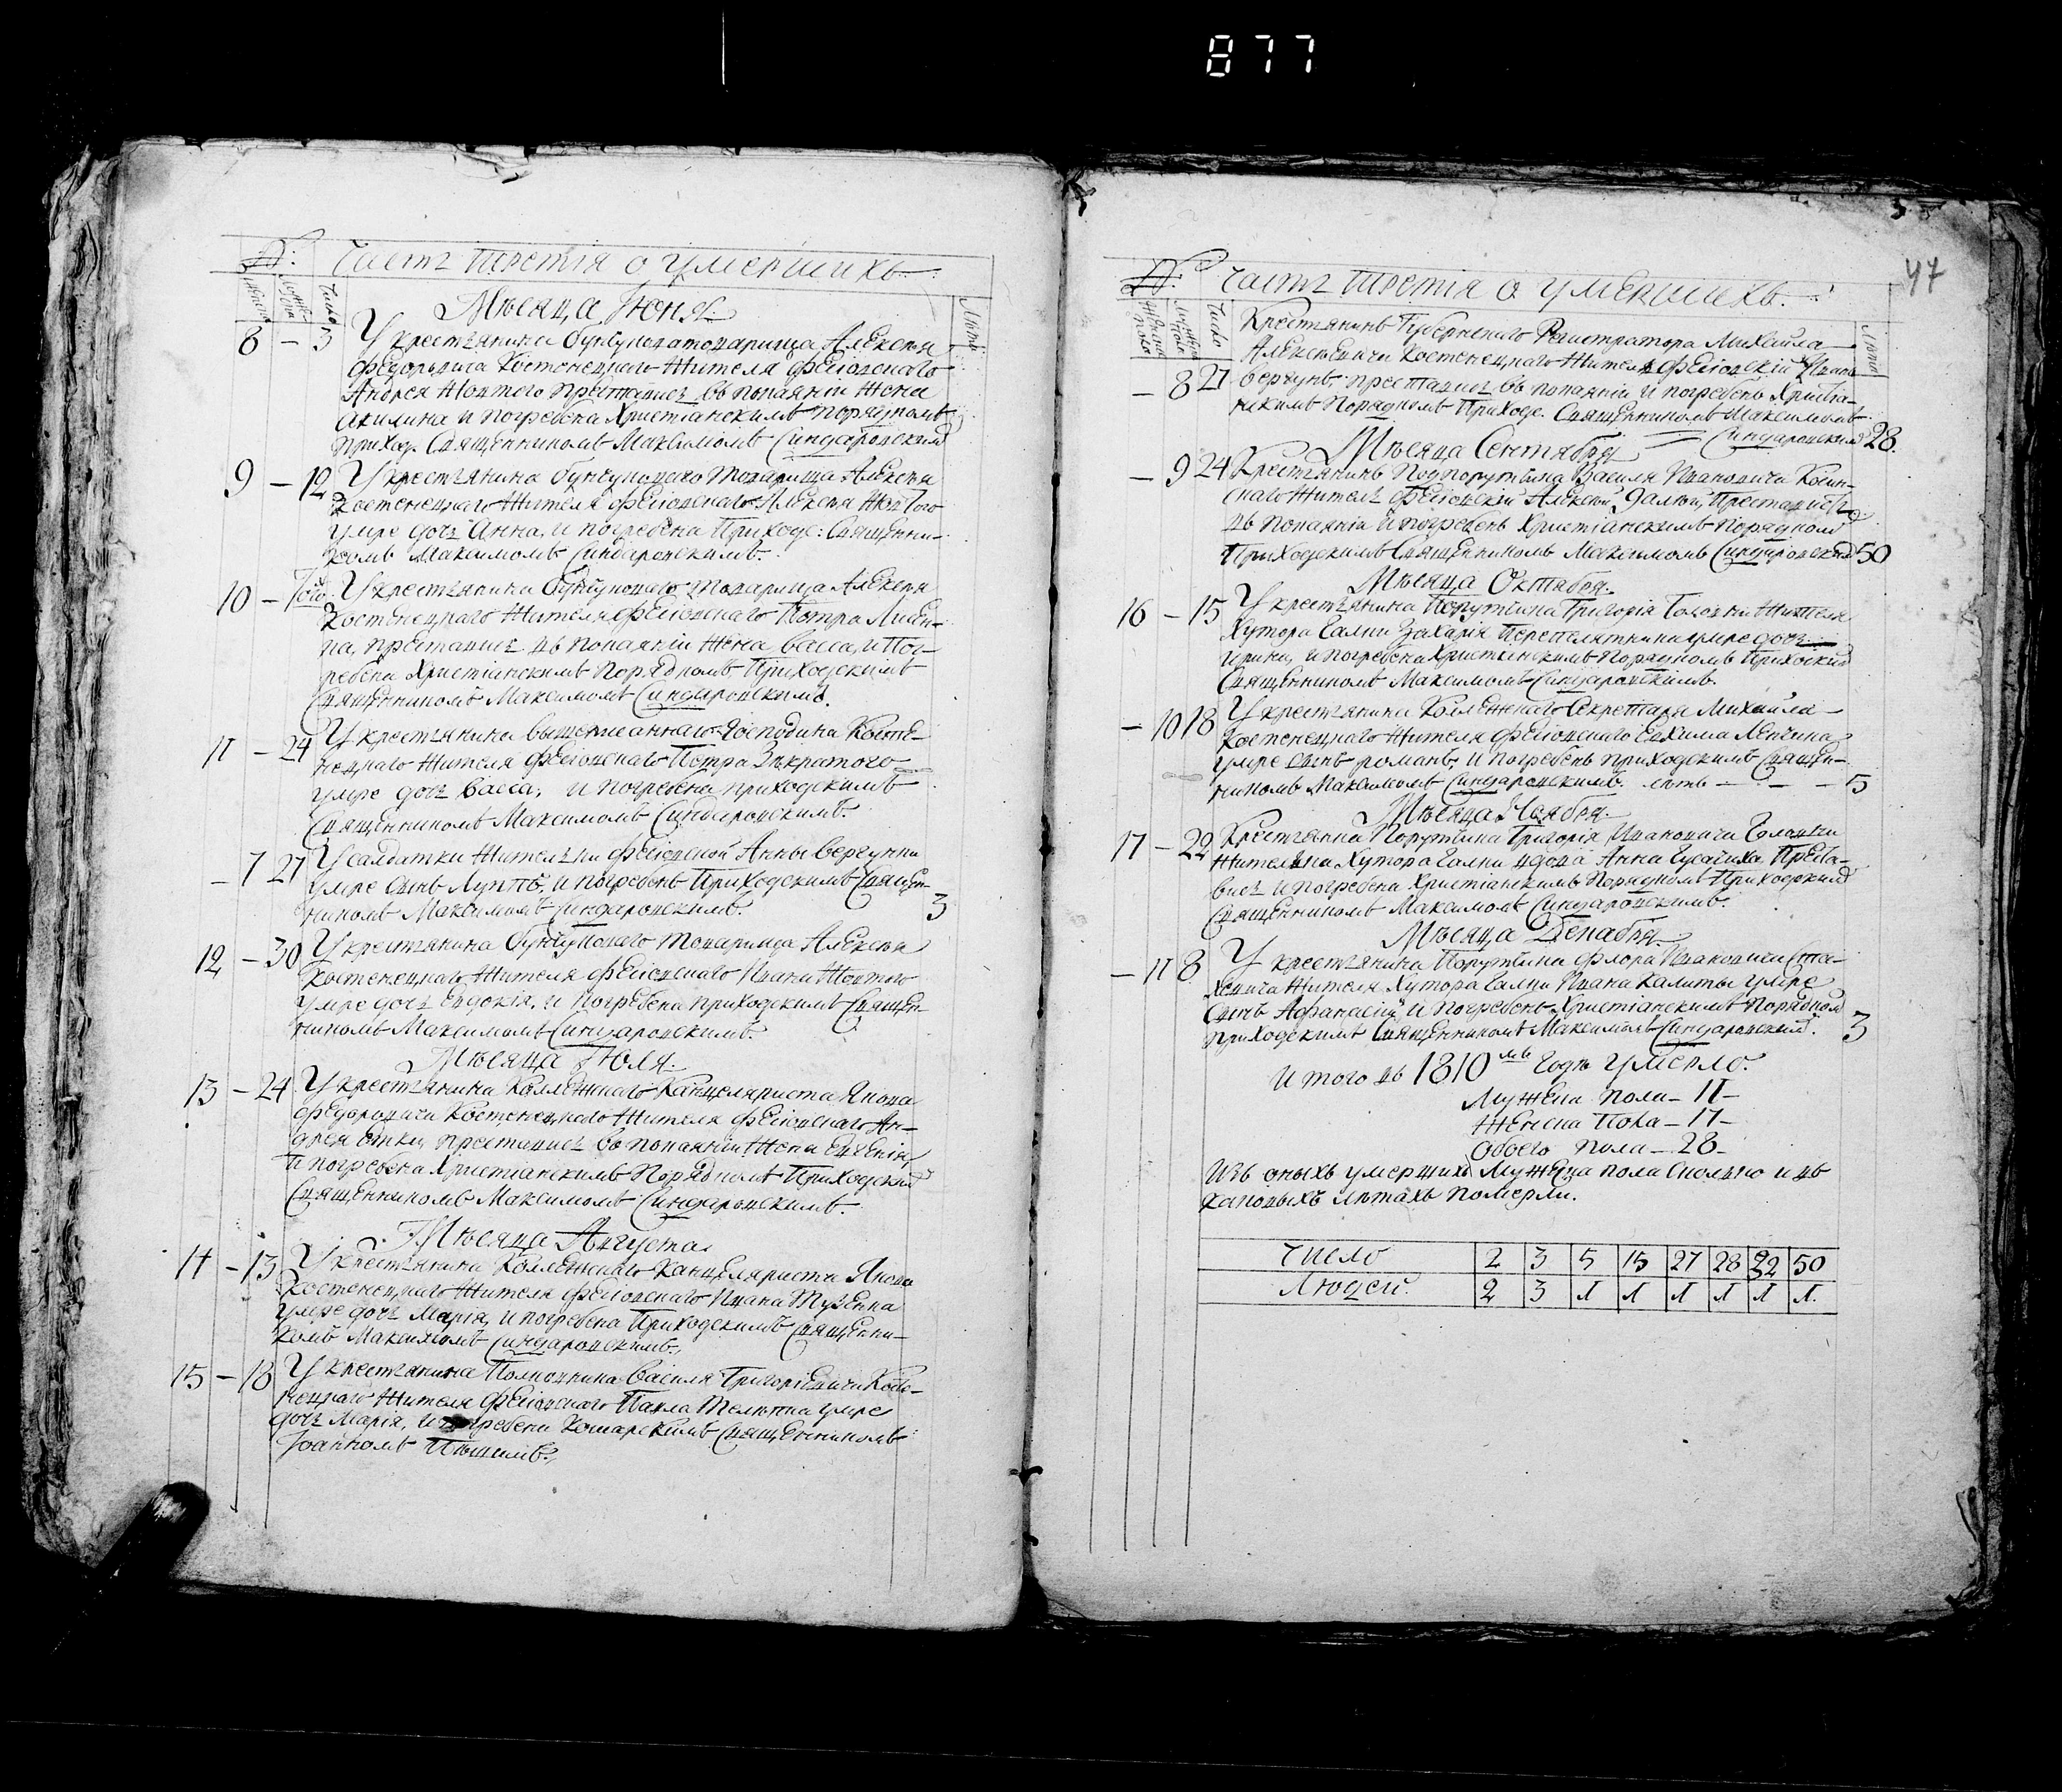 877
№: Часть третія о умершихъ.
женска
мужеска
Число
Лѣта
Мѣсяца Июня.
8 – 3 У крестянина бунчуковатоварища Алексѣя
Федоровича Костенецкаго жителя
Андрея Жовтого преставися въ покаяніи жена
Акилина и погребена Христіанскимъ порядкомъ
приход. Священникомъ Максимомъ Синдаровскимъ
9 – 12 У крестянина бунчуковаго товарища Алексѣя
Костенецкаго жителя Алексѣя Жовтого
умре дочь Анна, и погребена Приходс: Священни-
комъ Максимомъ Синдаровскимъ.
10 – Того У крестянина бунчуковаго товарища Алексѣя
Костенецкаго жителя Петра
преставися въ покаяніи жена Васса, и пог-
ребена Христіанскимъ порядкомъ Приходскимъ
Священникомъ Максимомъ Синдаровскимъ.
11 – 24 У крестянина вышеписаннаго Господина Косте-
нецкаго жителя Петра
умре дочь Васса, и погребена приходскимъ
Священникомъ Максимомъ Синдаровскимъ.
– 7 27 У салдатки жителки Анны Вергунки
умре сынъ Луппъ, и погребенъ Приходскимъ Священ-
никомъ Максимомъ Синдаровскимъ. 3
12 – 30 У крестянина бунчуковаго товарища Алексѣя
Костенецкаго жителя Ивана Жовтого
умре дочь Евдокія, и погребена приходскимъ Священ-
никомъ Максимомъ Синдаровскимъ.
Мѣсяца Июля.
13 – 24 У крестянина Коллежскаго Канцеляриста Якова
Федоровича Костенецкаго жителя Ан-
дрея преставися въ покаяніи жена Евгенія,
и погребена Христіанскимъ порядкомъ Приходским
Священникомъ Максимомъ Синдаровскимъ.
Мѣсяца Августа
14 – 13 У крестянина Коллежскаго Канцеляриста Якова
Костенецкаго жителя Ивана
умре дочь Марія, и погребена Приходскимъ Священни-
комъ Максимомъ Синдаровскимъ.
15 – 18 У крестянина Полковника Василя Григоріевича Косте-
нецкаго жителя Павла умре
дочь Марія, и погребена Кошарскимъ Священникомъ
Іоанномъ
47
№: Часть третія о умершихъ.
женска пола
мужеска пола
Число
Лѣта
Крестянинъ Губернскаго Регистратора Михайла
Алексѣевича Костенецкаго житель Иванъ
– 8 27 Вергунъ, преставися въ покаяніи и погребенъ Христіа-
нскимъ порядкомъ Приходс. Священникомъ Максимомъ
Синдаровским 28.
Мѣсяца Сентября
– 9 24 Крестянинъ Подпорутчика Василя Ивановича
житель Алексѣй преставися
въ покаяніи и погребенъ Христіанскимъ порядком
Приходскимъ Священникомъ Максимомъ Синдаровским 50
Мѣсяца Октября.
16 – 15 У крестянина Порутчика Григорія Головки жителя
Хутора Галки Захарія Перепелятника умре дочь
Ирина, и погребена Христіянскимъ порядкомъ Приходским
Священникомъ Максимомъ Синдаровскимъ.
– 10 18 У крестянина Коллежскаго Секретаря Михайла
Костенецкаго жителя Евхима
умре сынъ Романъ, и погребенъ приходскимъ Священ-
никомъ Максимомъ Синдаровскимъ. лѣтъ – – – 5
Мѣсяца Ноября.
17 – 22 Крестянка Порутчика Григорія Ивановича Головки
жителка Хутора Галки вдова Анна Гусачиха, преста-
вися и погребена Христіанскимъ порядкомъ Приходским
Священникомъ Максимомъ Синдаровскимъ.
Мѣсяца Декабря
– 11 8 У крестянина Порутчика Флора Ивановича Ста-
ховича жителя Хутора Галки Ивана Калиты умре
сынъ Афанасій и погребенъ Христіанскимъ порядком
приходскимъ Священникомъ Максимомъ Синдаровским. 3
Итого въ 1810мъ Годѣ умерло.
Мужеска пола – 11 –
Женска пола – 17 –
Обоего пола – 28 –
Изъ оныхъ умершихъ мужеска пола сколько и въ
каковыхъ лѣтахъ померли.
Число 2 3 5 15 27 28 32 50
Людей. 2 3 1 1 1 1 1 1.